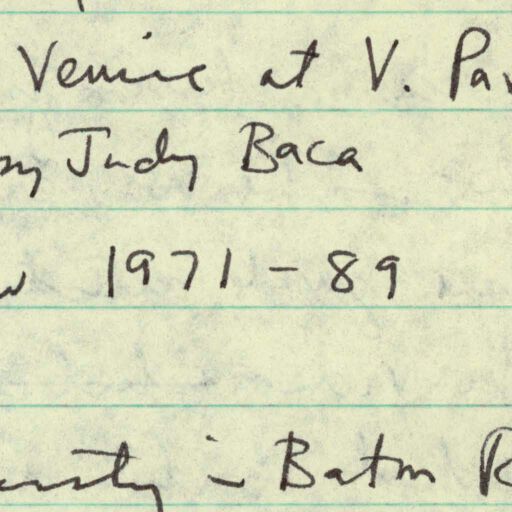 Venice at V. Pav
by Judy Baca
1971-89
in Baton R